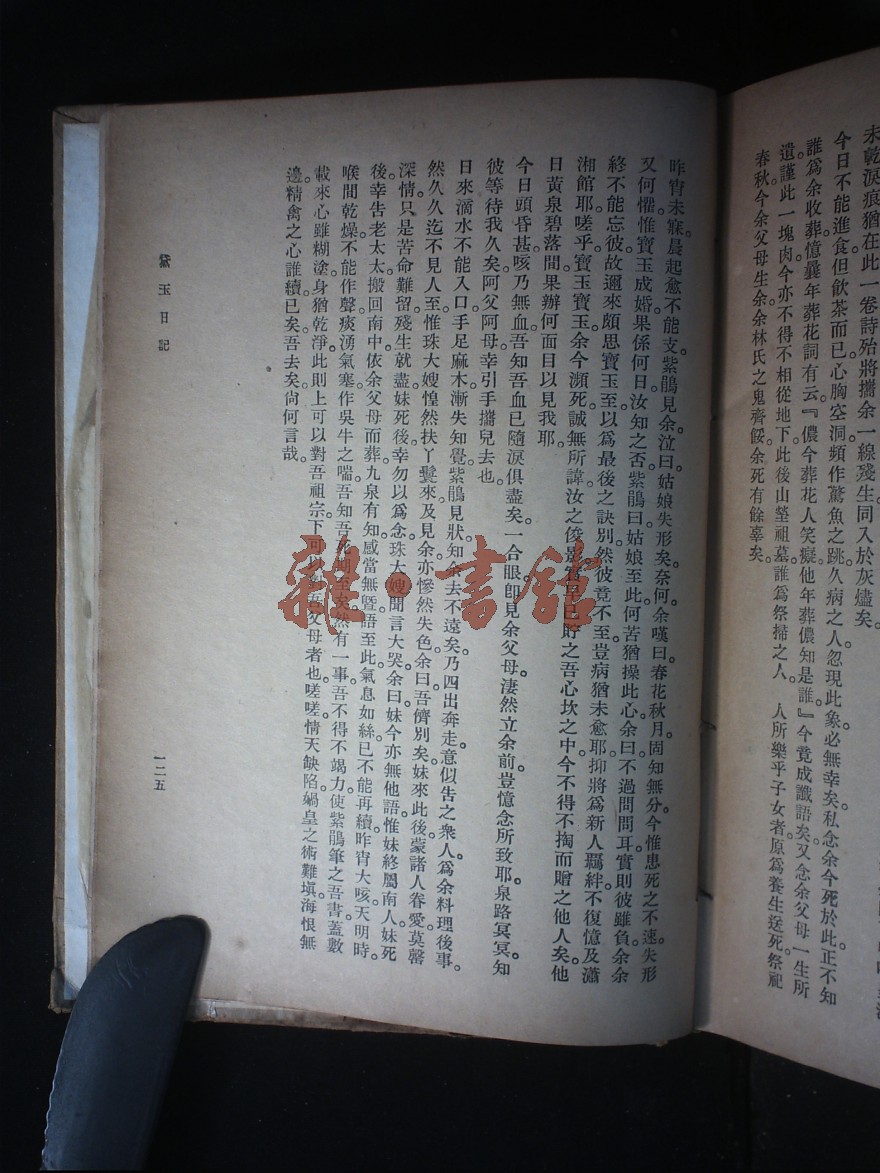 未乾淚痕猶在此一卷詩殆將攜余一線殘生同入於灰燼矣。
今日不能進食但飲茶而已心胸空洞頻作驚魚之跳久病之人忽現此象必無幸矣。私念余今死於此正不知
誰爲余收葬憶曩年葬花詞有云『儂今葬花人笑癡他年葬儂知是誰』今竟成讖語矣。又念余父母一生所
遺謹此一塊肉今亦不得不相從地下。此後山塋祖墓誰爲祭掃之人。人所樂乎子女者原爲養生送死祭祀
春秋今余父母生余余林氏之鬼齊餒余死有餘辜矣。
昨宵未寐晨起愈不能支。紫鵑見余泣曰姑娘失形矣奈何余嘆曰春花秋月固知無分今惟患死之不速失形
又何懼惟寶玉成婚果係何日汝知之否紫鵑曰姑娘至此何苦猶操此心余曰不過問問耳實則彼雖負余余
終不能忘彼故邇來頗思寶玉至以爲最後之訣別然彼竟不至豈病猶未愈耶抑將爲新人羈絆不復憶及瀟
湘館耶嗟乎寶玉寶玉余今瀕死誠無所諱汝之俊影實早已貯之吾心坎之中今不得不掏而贈之他人矣他
日黃泉碧落間果辦何面目以見我耶。
今日頭昏甚咳乃無血吾知吾血已隨淚俱盡矣。一合眼卽見余父母淒然立余前豈憶念所致耶泉路冥冥知
彼等待我久矣阿父阿母幸引手攜兒去也。
日來滴水不能入口。手足麻木漸失知覺紫鵑見狀知余去不遠矣乃四出奔走意似告之衆人爲余料理後事。
然久久迄不見人至。惟珠大嫂惶然扶丫鬟來及見余亦慘然失色余曰吾儕別矣。妹來此後。蒙諸人眷愛莫罄
深情只是苦命難留殘生就盡妹死後幸勿以爲念珠大嫂聞言大哭余曰妹今亦無他語惟妹終屬南人妹死
後幸吿老太太搬回南中。依余父母而葬九泉有知感當無暨語至此氣息如絲已不能再續昨宵大咳天明時。
喉間乾燥不能作聲痰湧氣塞作吳牛之喘。吾知吾死期至矣然有一事吾不得不竭力使紫鵑筆之吾書蓋數
載來心雖糊塗身猶乾淨此則上可以對吾祖宗下可以對吾父母者也嗟嗟情天缺陷媧皇之術難塡海恨無
邊。精禽之心誰續已矣吾去矣尙何言哉。
黛玉日記
一二五
雜·書館